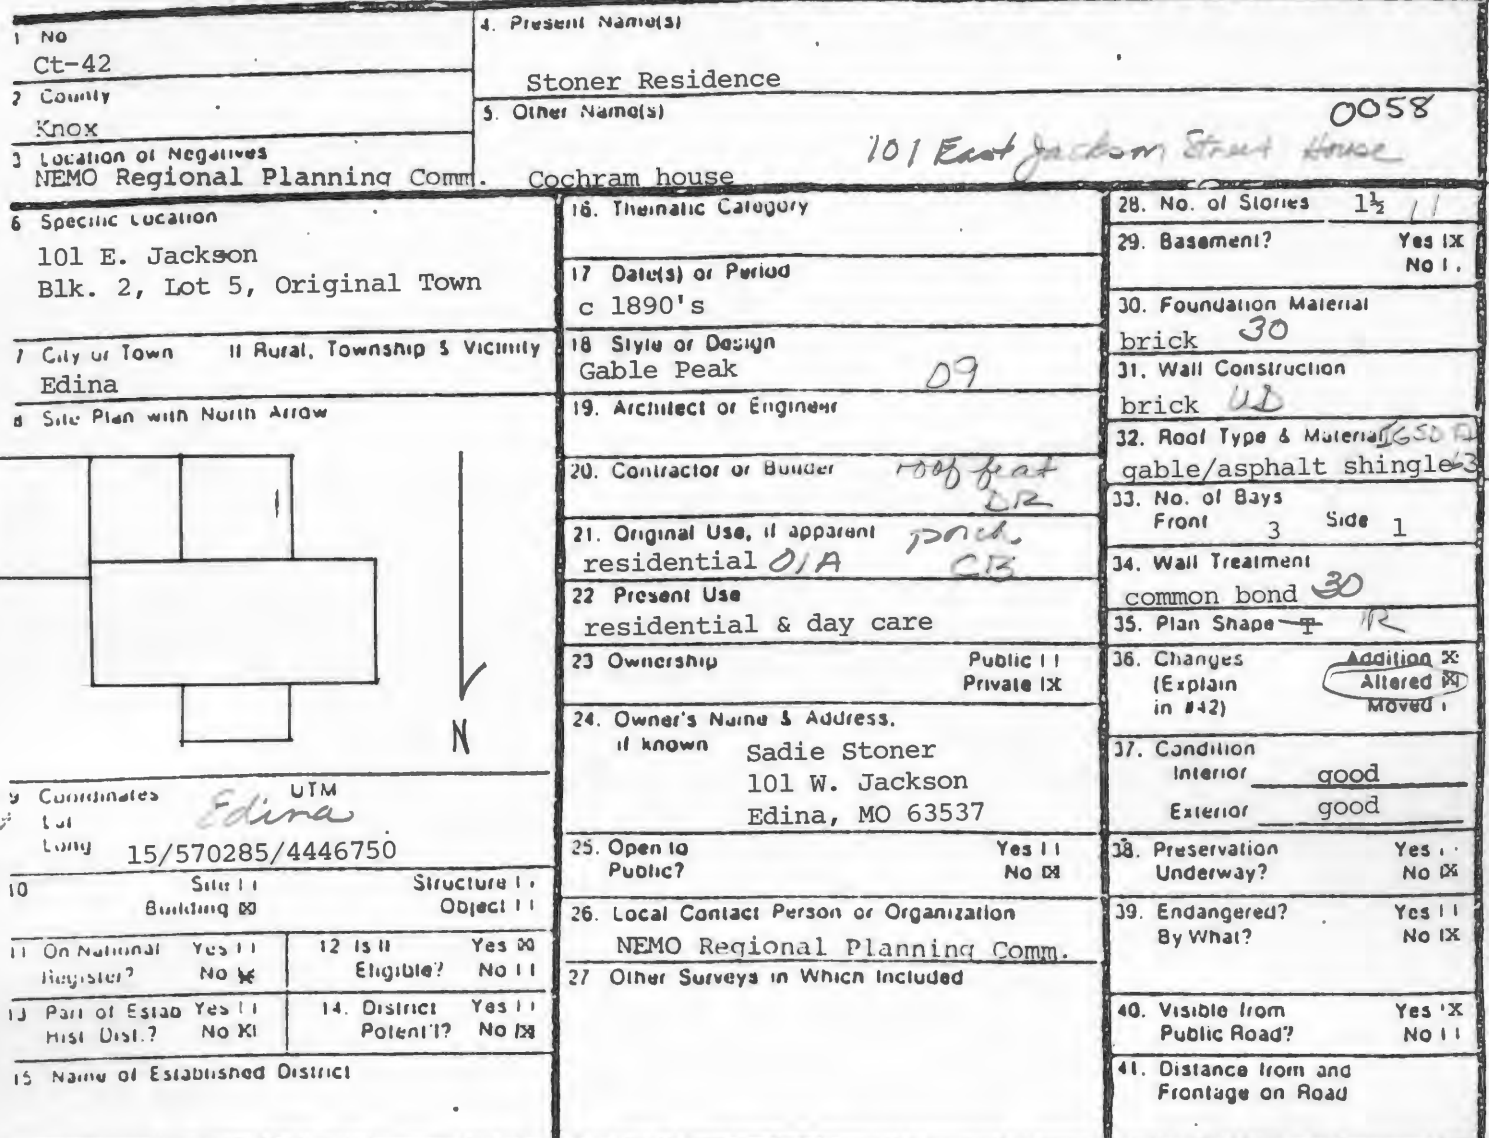 1 No
Ct-42
2 County
Knox
3 Location of Negatives
NEMO Regional Planning Comm.
4. Present Name(s)
Stoner Residence
5. Other Name(s)
0058
101 East Jackson Street House
Cochram house
6 Specific Location
101 E. Jackson
Blk. 2, Lot 5, Original Town
7 City or Town If Rural, Township & Vicinity
Edina
8 Site Plan with North Arrow
N
9 Coordinates UTM
Edina
Lat
Long
15/570285/4446750
10 Site | | Structure | |
Building |X| Object | |
11 On National Register? Yes | | No |X|
12 Is It Eligible? Yes |X| No | |
13 Part of Estab Hist. Dist.? Yes | | No |X|
14. District Potent'l? Yes | | No |X|
15 Name of Established District
16. Thematic Category
17 Date(s) or Period
c 1890's
18 Style or Design
Gable Peak 09
19. Architect or Engineer
20. Contractor or Builder
roof feat
DR
21. Original Use, if apparent
residential 01A
porch
CB
22 Present Use
residential & day care
23 Ownership Public | |
Private |X|
24. Owner's Name & Address,
if known
Sadie Stoner
101 W. Jackson
Edina, MO 63537
25. Open to Public? Yes | | No |X|
26. Local Contact Person or Organization
NEMO Regional Planning Comm.
27 Other Surveys in Which Included
28. No. of Stories 1½
29. Basement? Yes |X|
No | |
30. Foundation Material
brick 30
31. Wall Construction
brick UD
32. Roof Type & Material
gable/asphalt shingle 63
33. No. of Bays
Front 3 Side 1
34. Wall Treatment
common bond 30
35. Plan Shape T R
36. Changes (Explain in #42)
Addition |X|
Altered |X|
Moved | |
37. Condition
Interior good
Exterior good
38. Preservation Underway? Yes | | No |X|
39. Endangered? By What? Yes | | No |X|
40. Visible from Public Road? Yes |X| No | |
41. Distance from and
Frontage on Road